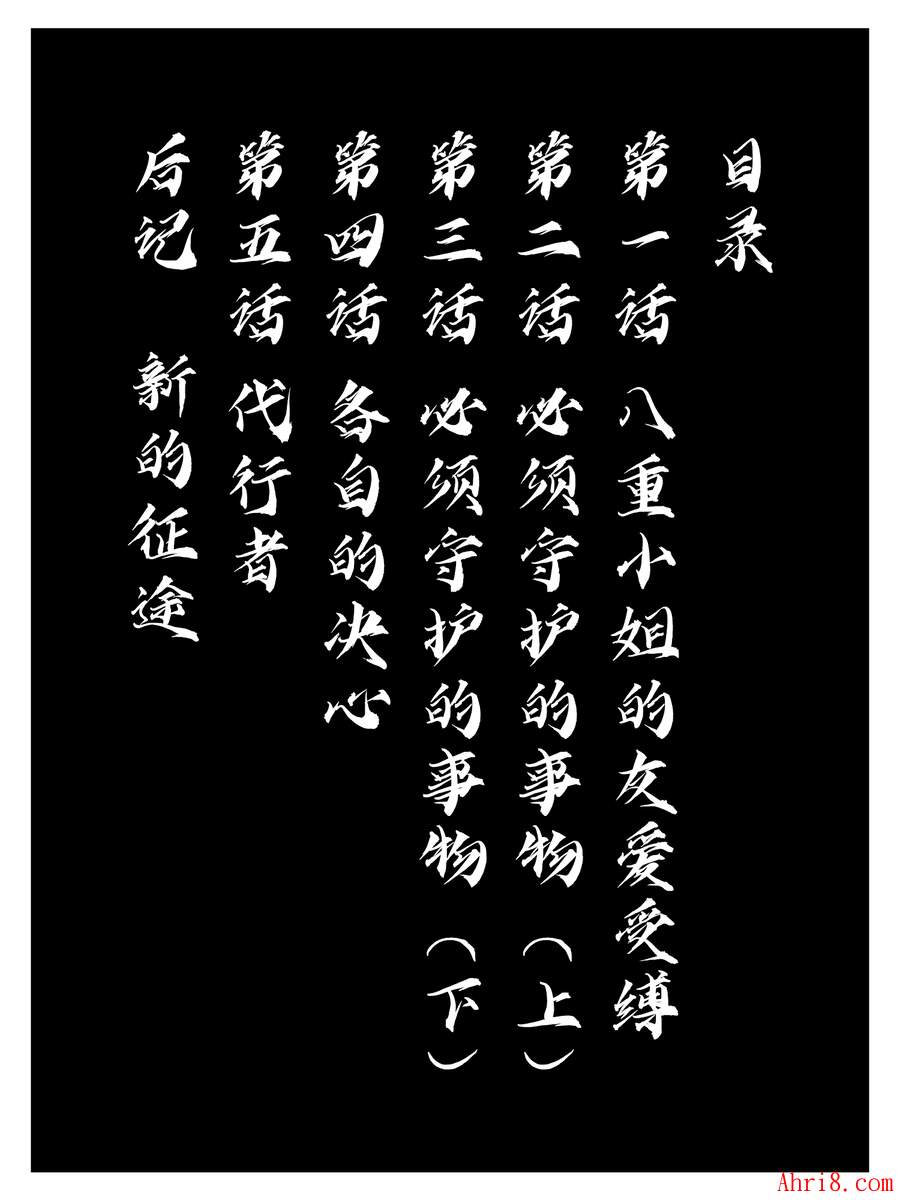 目录
第一话 八重小姐的友爱受缚
第二话 必须守护的事物（上）
第三话 必须守护的事物（下）
第四话 各自的决心
第五话 代行者
后记 新的征途
Ahri8.com